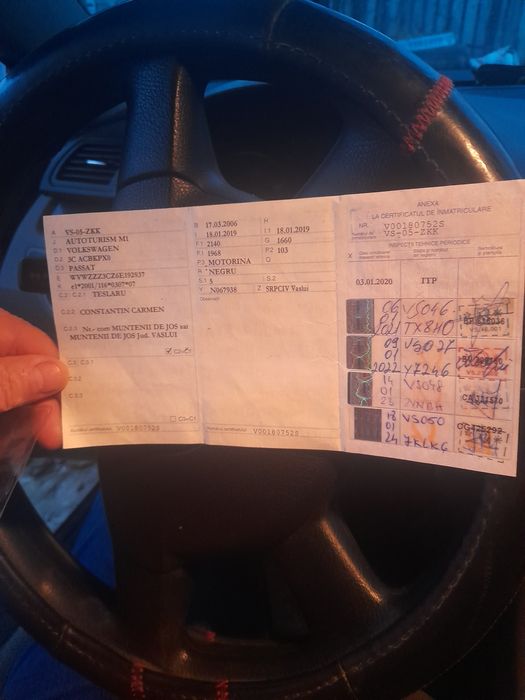 A VS-05-ZKK
J AUTOTURISM M1
D.1 VOLKSWAGEN
D.2 3C ACBKPX0
D.3 PASSAT
E WVWZZZ3CZ6E192837
K e1*2001/116*0307*07
C.2 C.2.1 TESLARU
C.2.2 CONSTANTIN CARMEN
C.2.3 Nr.- com MUNTENII DE JOS sat
MUNTENII DE JOS Jud. VASLUI
C.3 C.3.1
C.3.2
C.3.3
Numărul certificatului V00180752S
B 17.03.2006 H
I 18.01.2019 I.1 18.01.2019
F.1 2140 G 1660
P.1 1968 P.2 103
P.3 MOTORINA Q
R *NEGRU
S.1 5 S.2
Y N067938 Z SRPCIV Vaslui
Observații
Numărul certificatului V00180752S
ANEXA
LA CERTIFICATUL DE ÎNMATRICULARE
NR. V00180752S
VS-05-ZKK
INSPECȚII TEHNICE PERIODICE
X
03.01.2020 ITP
06 VS046
01
2021 TX8HO
09 VS027
01
2022 Y7246
14 VS048
01
23
18 VS050
01
24 7KLKG